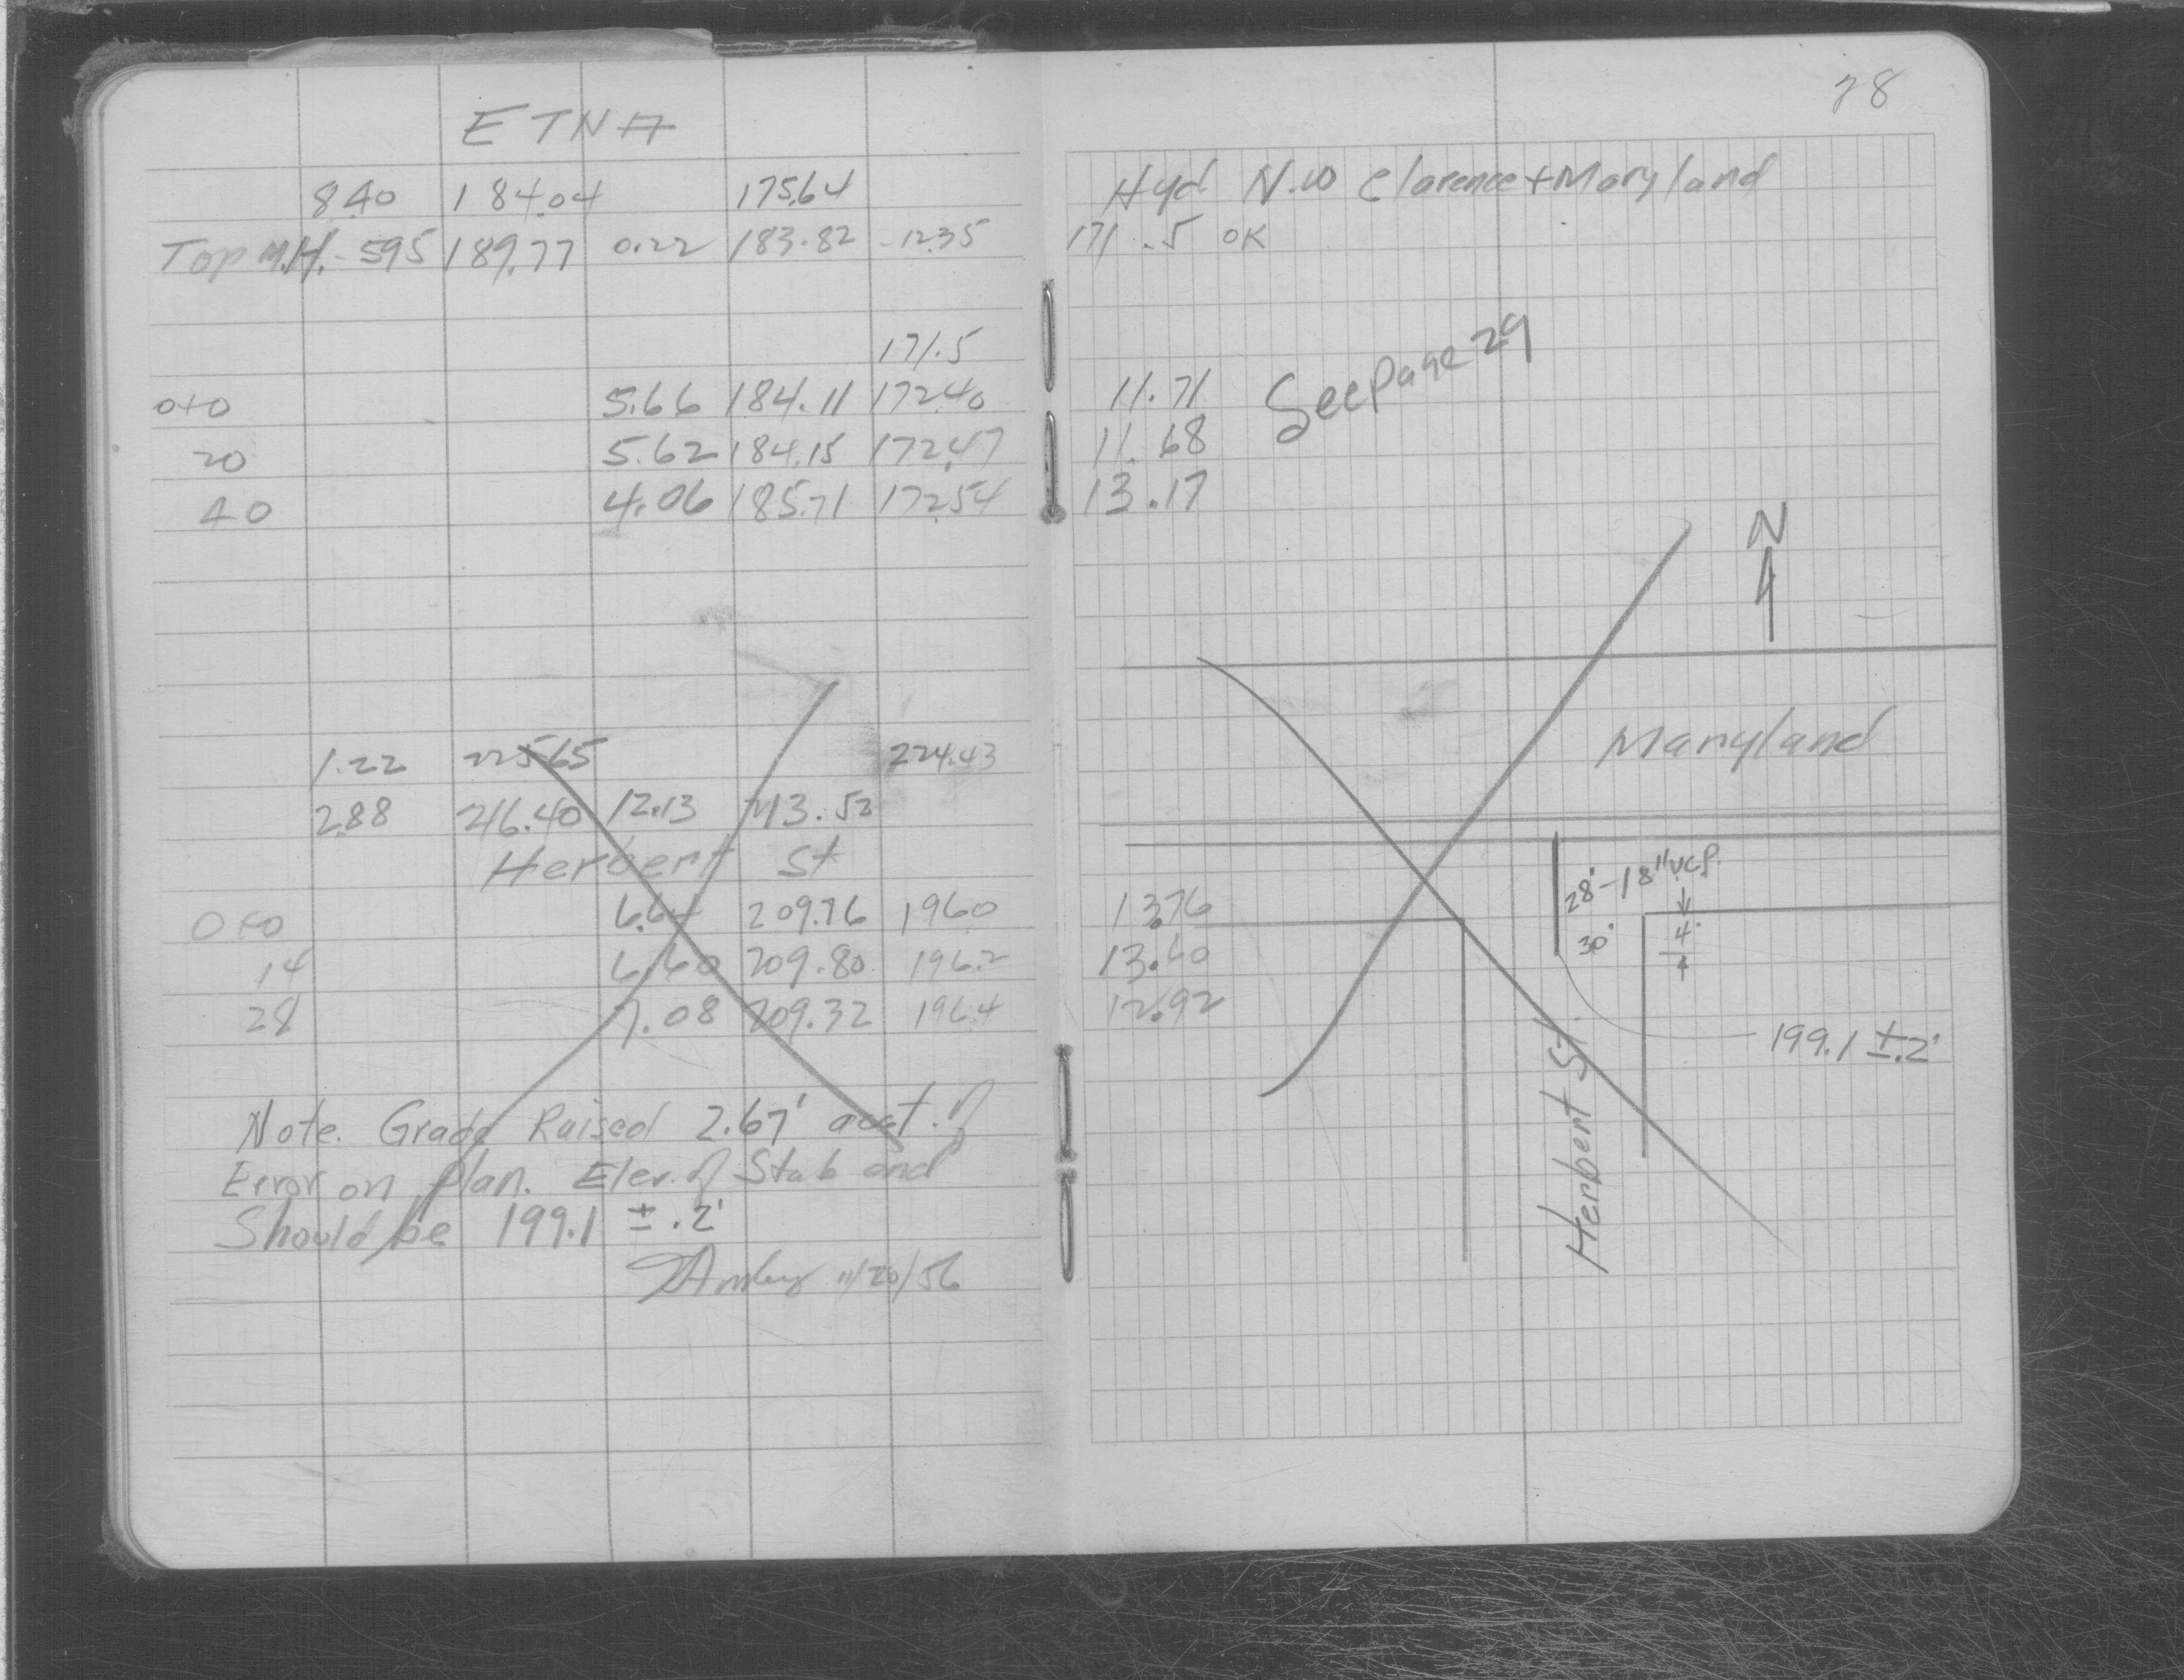 ETNA
8.40 184.04 175.64
Top M.H. - 5.95 189.77 0.22 183.82 -12.35
171.5
0+0 5.66 184.11 172.40
20 5.62 184.15 172.47
40 4.06 185.71 172.54
1.22 225.65 224.43
2.88 216.40 12.13 213.52
Herbert St
0+0 6.64 209.76 196.0
14 6.60 209.80 196.2
28 7.08 209.32 196.4
Note. Grade Raised 2.67' acct. of
Error on plan. Elev. of Stab end
Should be 199.1 ± .2'
11/20/56
28
Hyd N.W Clarence + Maryland
171.5 OK
See Page 29
11.71
11.68
13.17
N
Maryland
28'-18" V.C.P.
30'
4'
13.76
13.60
12.92
Herbert St.
199.1 ± .2'